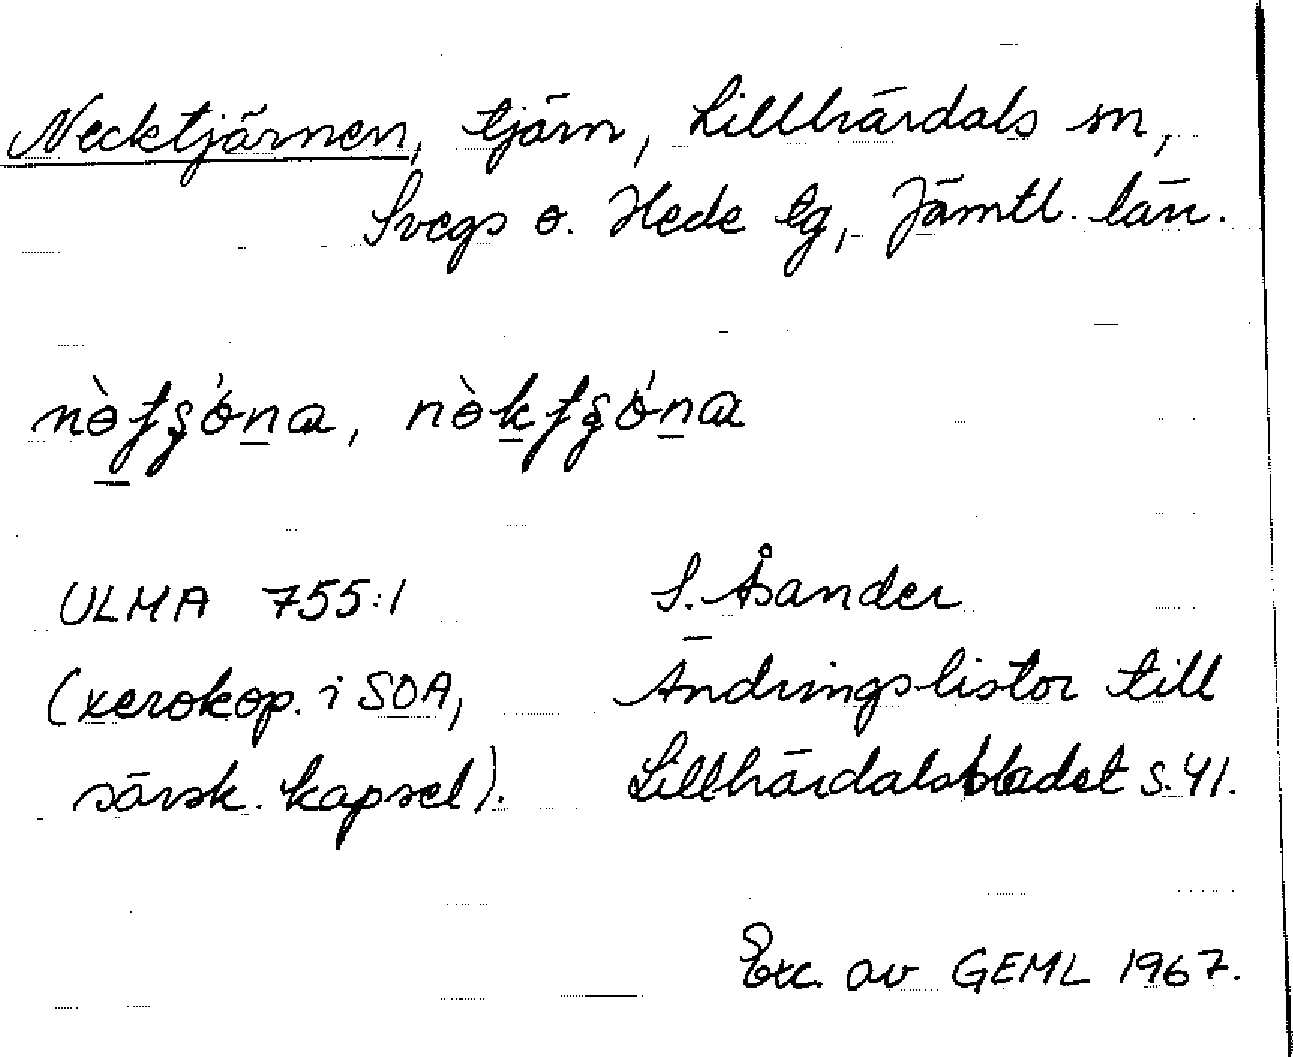 Necktjärnen, tjärn, Lillhärdals sn,
Svegs o. Hede tg, Jämtl. län.
ULMA 755:1
S. Åsander
(xerokop. i SOA,
Ändringslistor till
särsk. kapsel).
Lillhärdalsbladet s. 41.
Exc. av GEML 1967.